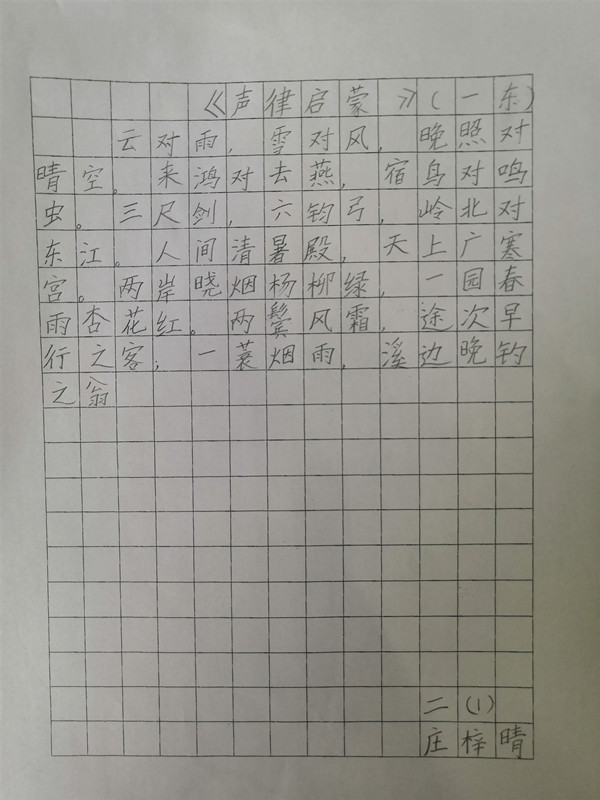 《声律启蒙》(一东)
云对雨，雪对风，晚照对
晴空。来鸿对去燕，宿鸟对鸣
虫。三尺剑，六钧弓，岭北对
东江。人间清暑殿，天上广寒
宫。两岸晓烟杨柳绿，一园春
雨杏花红。两鬓风霜，途次早
行之客；一蓑烟雨，溪边晚钓
之翁
二(1)
庄梓晴